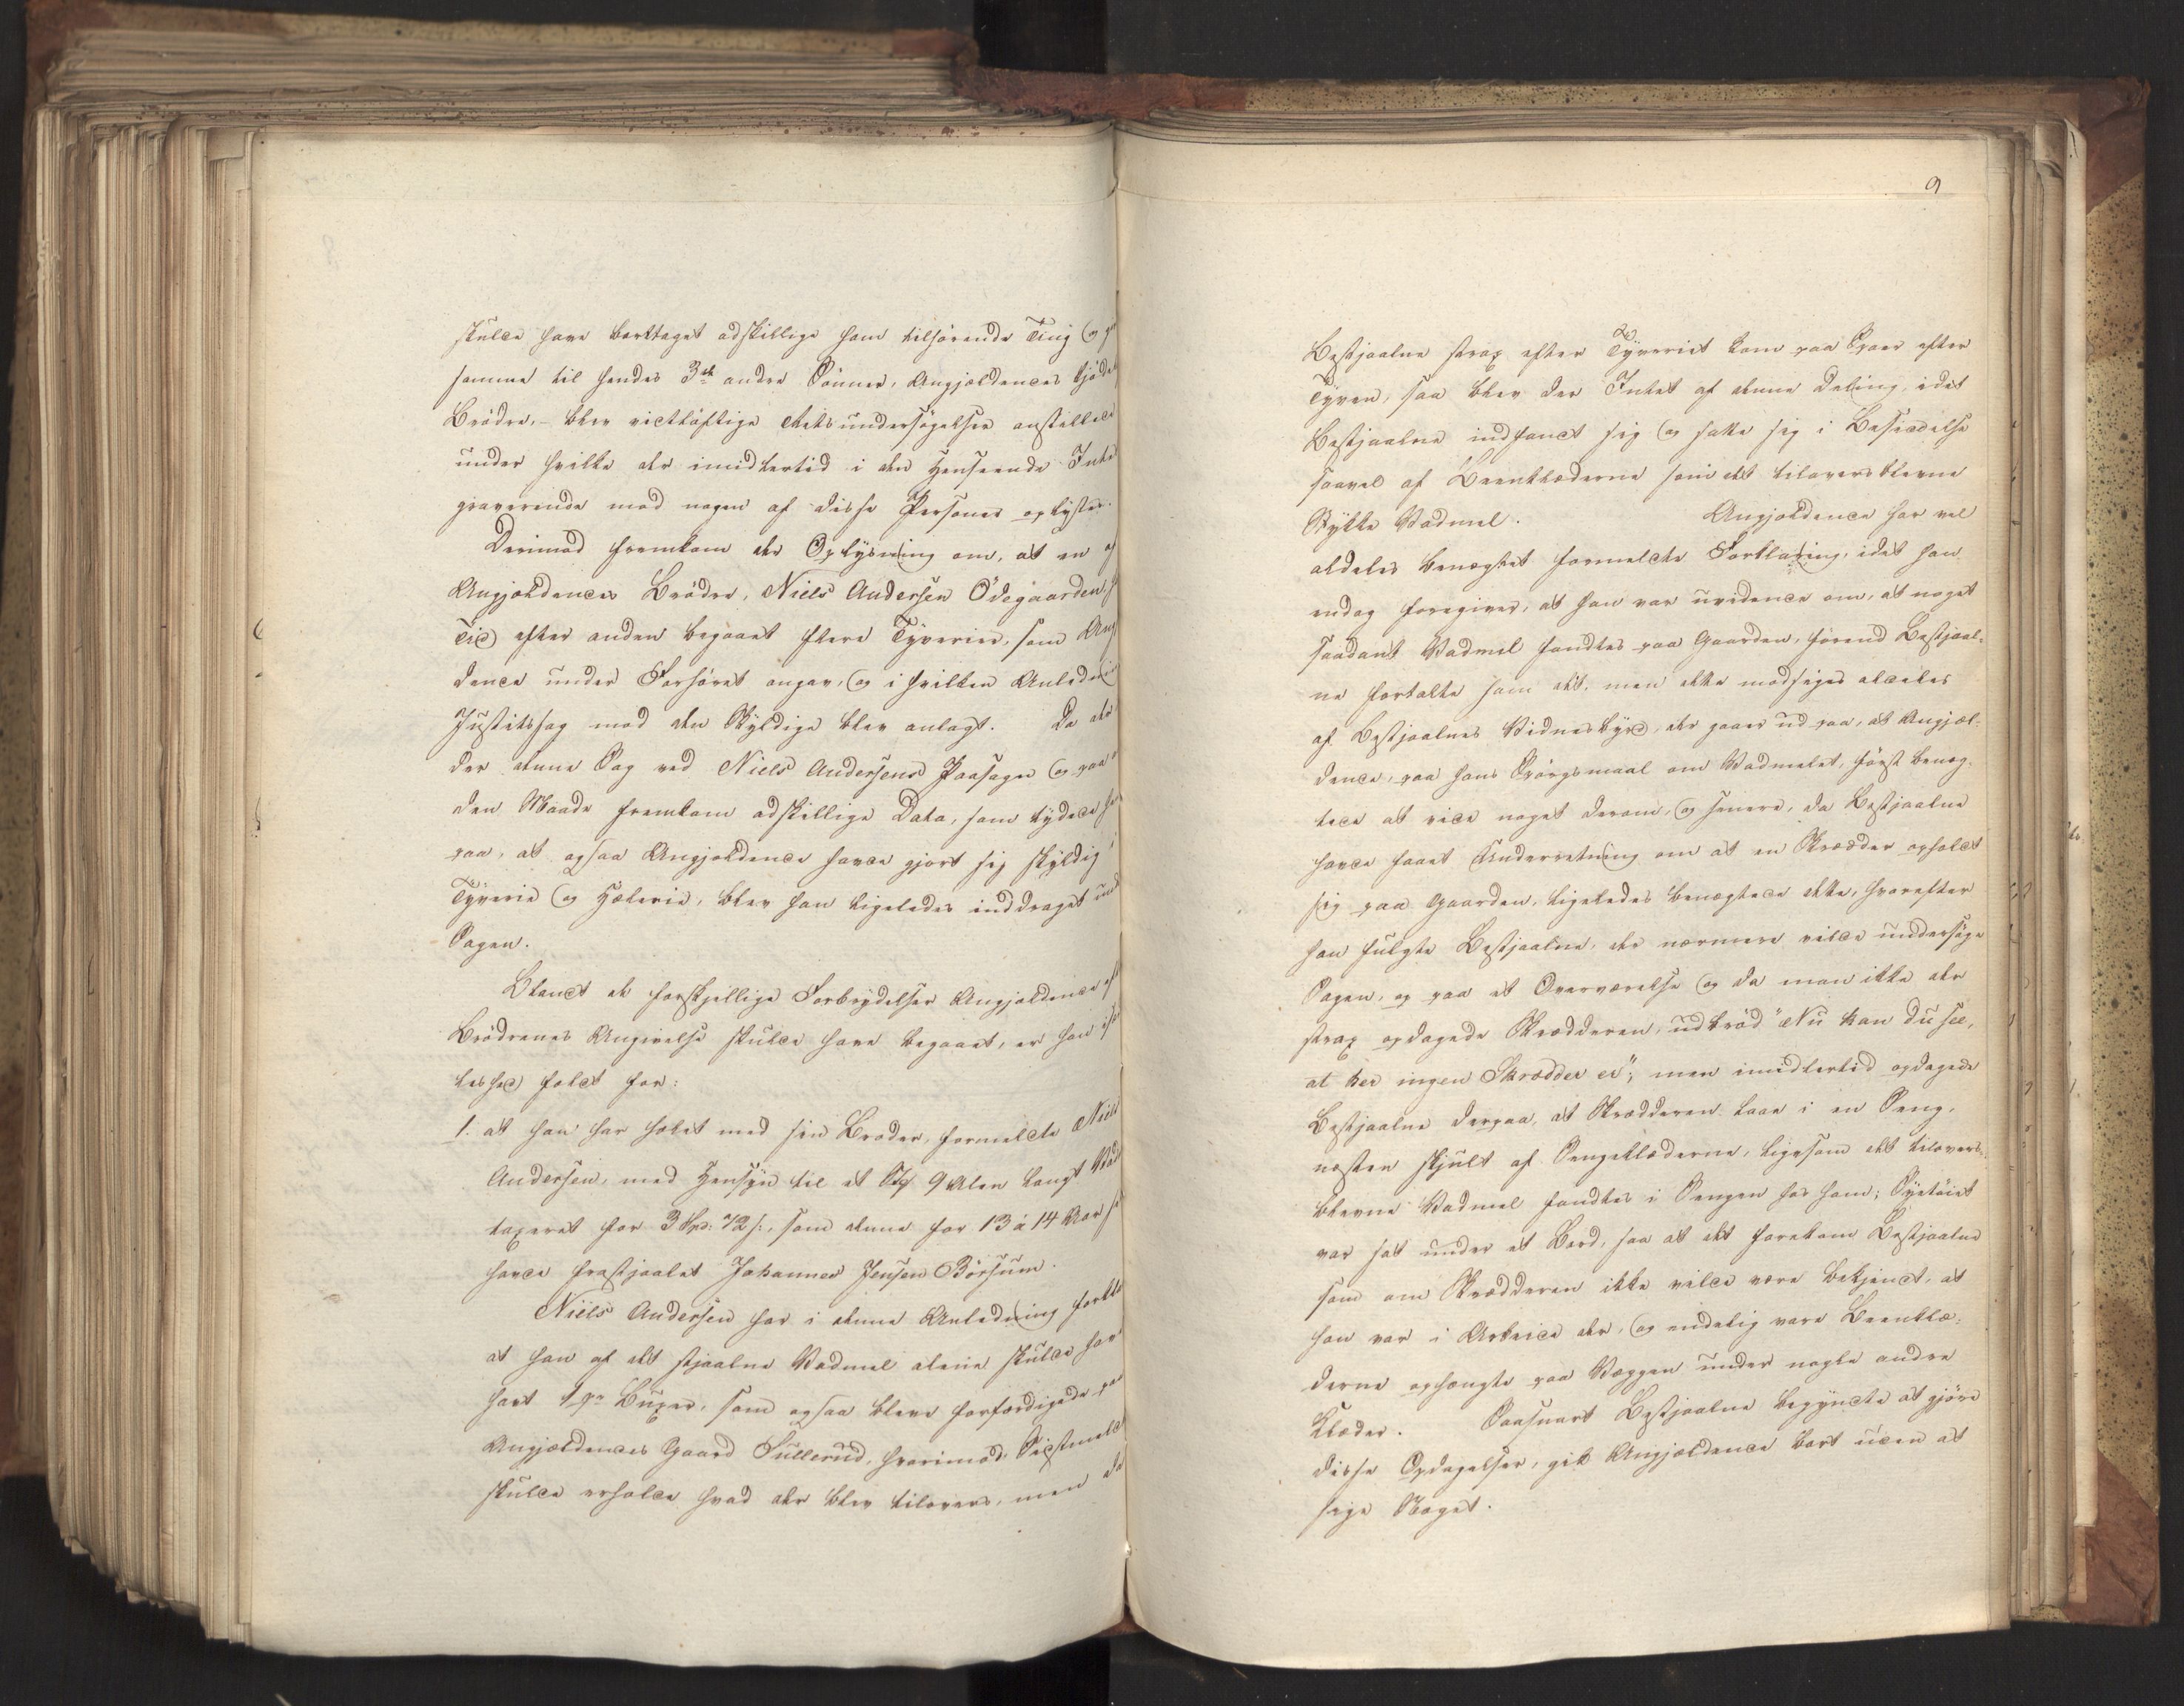 skulde have borttaget adskillige ham tilhørende Ting og
samme til hendes 3de andre Sønner, Angjældendes kjöde
Brödre, - blev vidtløftige Retsundersøgelser anstillede
under hvilke der imidlertid i den Henseende Inte
graverende mod nogen af disse Personer oplystes.
Derimod fremkom der Oplysning om, at en af
Angjældendes Brödre, Niels Andersen Ödegaarden,
Tid efter anden begaaet flere Tyverier, som Ang
dende under Forhöret angav, og i hvilken Anledni
Justitssag mod den Skyldige blev anlagt. Da der
der denne Sag ved Niels Andersens Paasagn og paa
den Maade fremkom adskillige Data, som tydede
paa, at ogsaa Angjældende havde gjort sig skyldig i
Tyverie og Hæleri, blev han ligeledes inddraget und
Sagen.
Blandt de forskjellige Forbrydelser Angjældende eft
Brödrenes Angivelse skulde have begaaet, er han
teshed fældt for:
1. at han har hælet med sin Broder, formeldte Niels
Andersen, med Hensyn til et Stk 9 Alen langt Vad
taxeret for 3 Spd: 72 s:, som denne for 13 à 14 Aar
havde frastjaalet Johannes Jensen Börsum.
Niels Andersen har i denne Anledning forkla
at han af det stjaalne Vadmel alene skulde hav
havt 1 pr Buxer, som ogsaa bleve forfærdigede paa
Angjældendes Gaard Sullerud, hvorimod Sidstmeld
skulde erholde hvad der blev tilovers, men da
9
Bestjaalne strax efter Tyveriet kom paa Spoer efter
Tyven, saa blev der Intet af denne Deling, idet
Bestjaalne indfandt sig og satte sig i Besiddelse
saavel af Beenklæderne som det tiloversblevne
Stykke Vadmel. Angjældende har vel
aldeles benægtet formeldte Forklaring, idet han
endog foregiver, at han var uvidende om, at noget
saadant Vadmel fandtes paa Gaarden, förend Bestjaal-
ne fortalte ham det, men dette modsiges aldeles
af Bestjaalnes Vidnesbyrd, der gaaer ud paa, at Angjæl-
dende, paa hans Spörgsmaal om Vadmelet, först benæg-
tede at vide noget derom, og senere, da Bestjaalne
havde faaet Underretning om at en Skrædder opholdt
sig paa Gaarden, ligeledes benægtede dette, hvorefter
han fulgte Bestjaalne, der nærmere vilde undersöge
Sagen, op paa et Overværelse og da man ikke der
strax opdagede Skrædderen, udbröd "Nu kan du see,
at her ingen Skrædder er"; men imidlertid opdagede
Bestjaalne derpaa, at Skrædderen laae i en Seng,
næsten skjult af Sengeklæderne, ligesom det tilovers-
blevne Vadmel fandtes i Sengen hos ham; Syetöiet
var sat under et Bord, saa at det forekom Bestjaalne
som om Skrædderen ikke vilde være bekjendt, at
han var i Arbeide der, og endelig vare Beenklæ-
derne ophængte paa Væggen under nogle andre
Klæder. Saasnart Bestjaalne begyndte at gjöre
disse Opdagelser, gik Angjældende bort uden at
sige Noget.